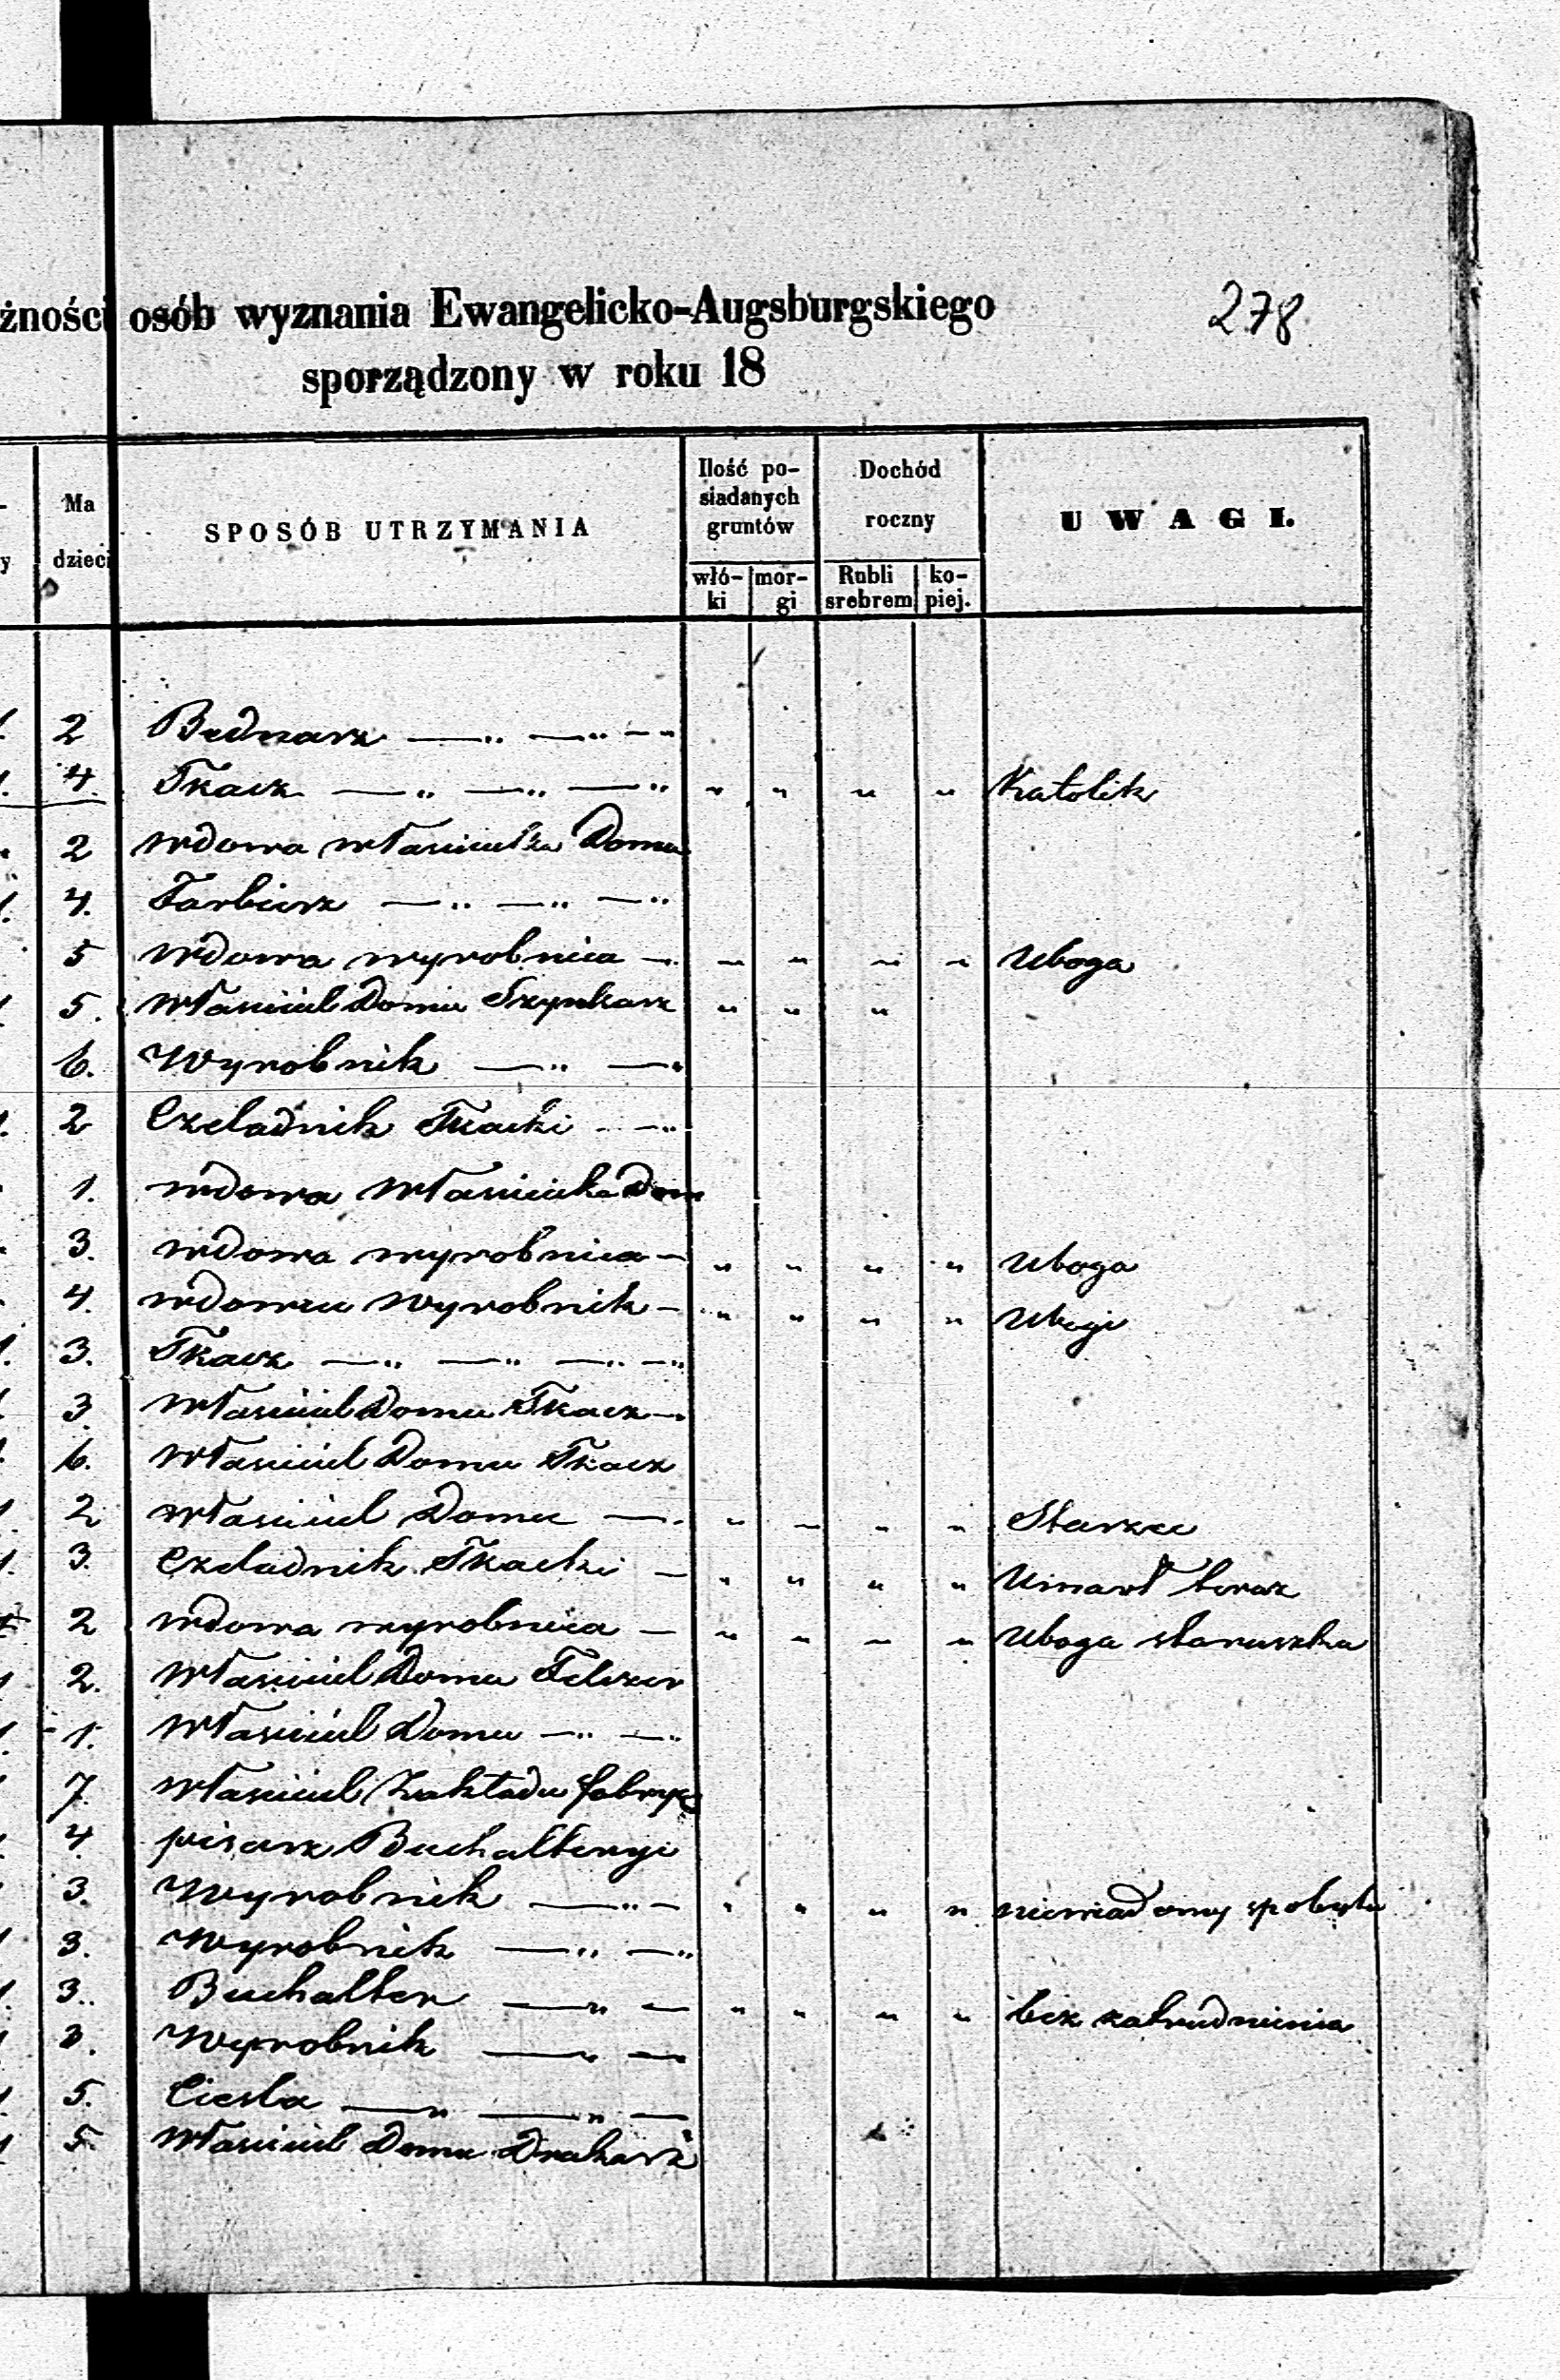 278
żności osób wyznania Ewangelicko-Augsburgskiego
sporządzony w roku 18
Ma dzieci
SPOSÓB UTRZYMANIA
Ilość posiadanych gruntów
włóki morgi
Dochód roczny
Rubli srebrem kopiej.
UWAGI.
2 Bednarz —„ —„ -„
4. Tkacz —„ —„ —„ „ „ „ „ Katolik
2 wdowa właścicielka Domu
4. Farbierz —„ —„ —„
5 wdowa wyrobnica — „ „ „ „ Uboga
5. właściciel Domu Szynkarz „ „ „
6. Wyrobnik —„ —„
2 Czeladnik Tkacki - —„
1. wdowa właścicielka Dom
3. wdowa wyrobnica — „ „ „ „ Uboga
4. wdowiec wyrobnik — „ „ „ „ Ubogi
3. Tkacz —„ —„ —„ —„
3 właściciel Domu Tkacz —
6. właściciel Domu Tkacz
2 właściciel Domu — „ „ „ „ Starzec
3. Czeladnik Tkacki — „ „ „ „ Umarł teraz
2 wdowa wyrobnica — „ „ „ „ Uboga staruszka
2. właściciel Domu Felczer
1. właściciel Domu —„ —„
7. właściciel Zakładu fabryk
4. pisarz Buchalteryi
3. Wyrobnik —„ — „ „ „ „ niewiadomy
3. Wyrobnik —„ —„
3. Buchalter —„ — „ „ „ „ bez zatrudnienia
3. Wyrobnik —„ —
5. Ciesla —„ —„ —
5. właściciel Domu Drukarz